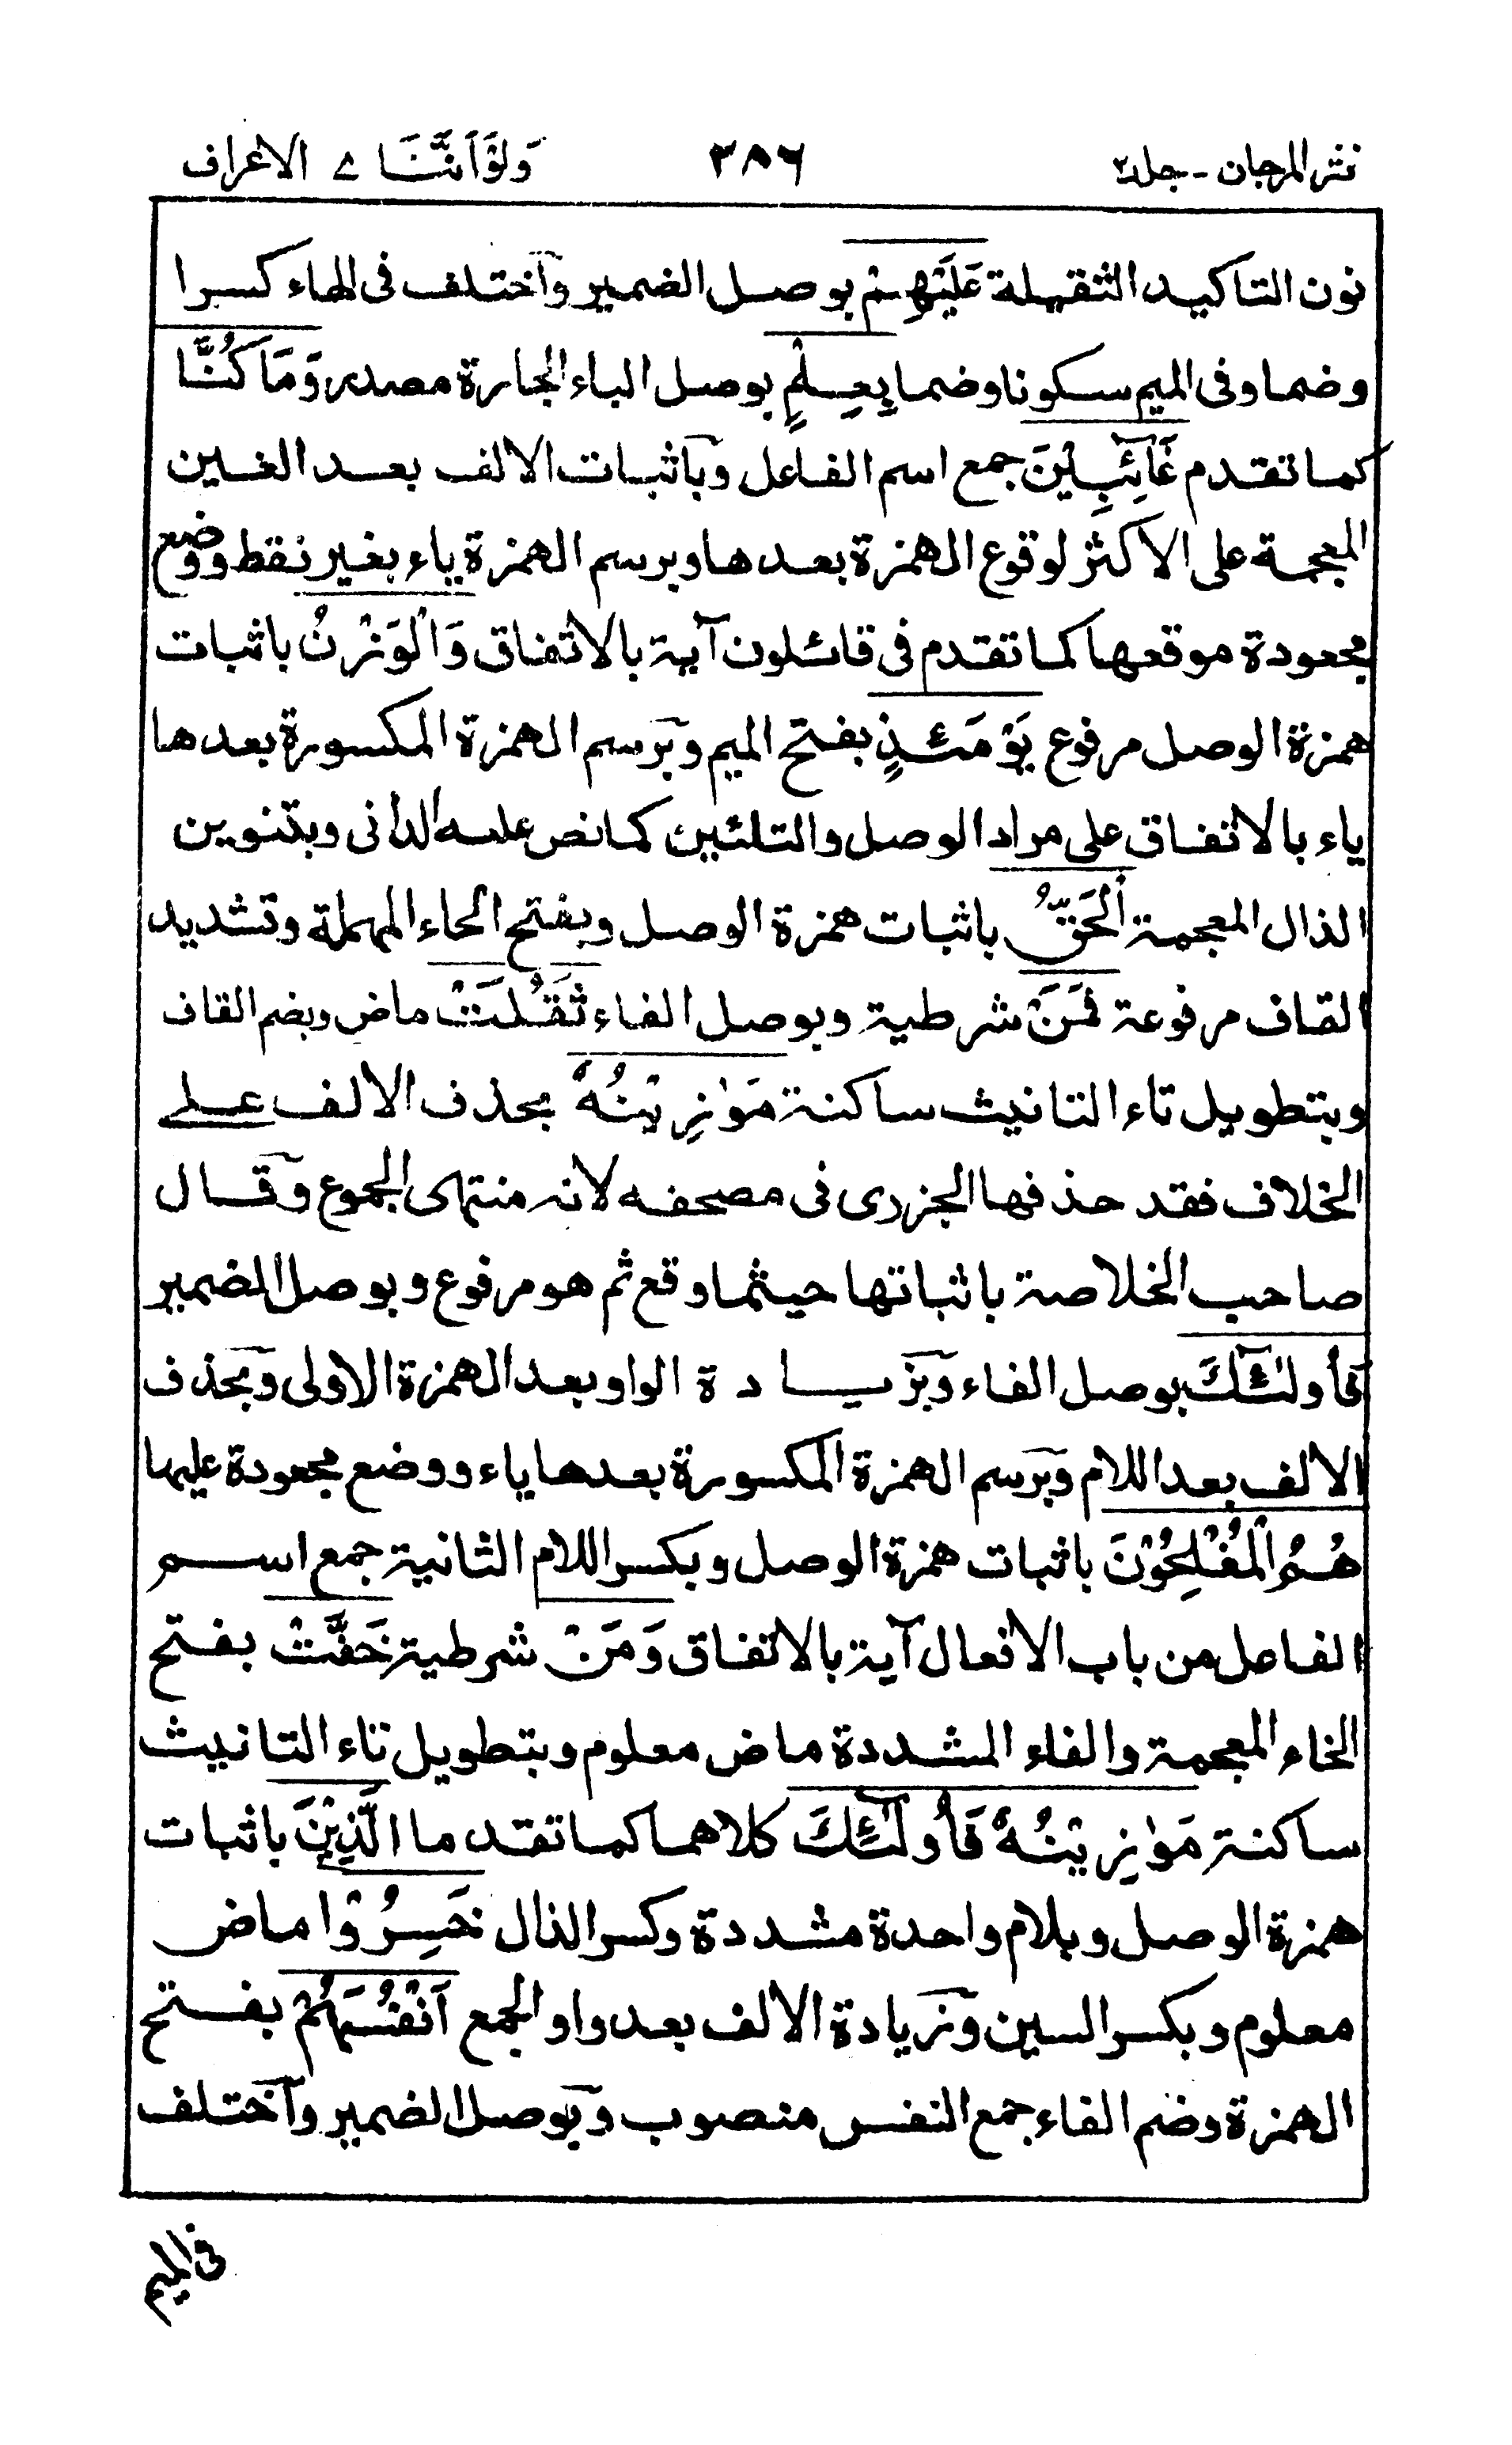 نثر المرجان - جلد٢ ٣٨٦ وَلَوْ اَنَّنَا ے الاعراف
نون التاكيد الثقيلة عَلَيْهِمْ بوصل الضمير وآختلف فى الهاء كسرا
وضما وفى الميم سكونا وضما بِعِلْمٍ بوصل الباء الجارة مصدر وَمَا كُنَّا
كما تقدم غَآئِبِيْنَ جمع اسم الفاعل وبآثبات الالف بعد الغين
المعجمة على الاكثر لوقوع الهمزة بعدها وبرسم الهمزة ياء بغير نقط ووضع
مجعودة موقعها كما تقدم فى قائلون آية بالاتفاق وَالْوَزْنُ باثبات
همزة الوصل مرفوع يَوْمَئِذٍ بفتح الميم وبرسم الهمزة المكسورة بعدها
ياء بالاتفاق على مراد الوصل والتلئين كما نص عليه الدانى وبتنوين
الذال المعجمة اَلْحَقُّ باثبات همزة الوصل وبفتح الحاء المهملة وتشديد
القاف مرفوعة فَمَنْ شرطية وبوصل الفاء ثَقُلَتْ ماض وبضم القاف
وبتطويل تاء التانيث ساكنة مَوٰزِيْنُهٗ بحذف الالف على
الخلاف فقد حذفها الجزرى فى مصحفه لانه منتهى الجموع وقال
صاحب الخلاصة باثباتها حيثما وقع ثم هو مرفوع وبوصل الضمير
فَأُولٰٓئِكَ بوصل الفاء وبزيادة الواو بعد الهمزة الاولى وبحذف
الالف بعد اللام وبرسم الهمزة المكسورة بعدها ياء ووضع مجعودة عليها
هُمُ الْمُفْلِحُوْنَ باثبات همزة الوصل وبكسر اللام الثانية جمع اسم
الفاعل من باب الافعال آية بالاتفاق وَمَنْ شرطية خَفَّتْ بفتح
الخاء المعجمة والفاء المشددة ماض معلوم وبتطويل تاء التانيث
ساكنة مَوٰزِيْنُهٗ فَأُولٰٓئِكَ كلاهما كما تقدما الَّذِيْنَ باثبات
همزة الوصل وبلام واحدة مشددة وكسر الذال خَسِرُوْا ماض
معلوم وبكسر السين وزيادة الالف بعد واو الجمع اَنْفُسَهُمْ بفتح
الهمزة وضم الفاء جمع النفس منصوب وبوصل الضمير وآختلف
فى الميم